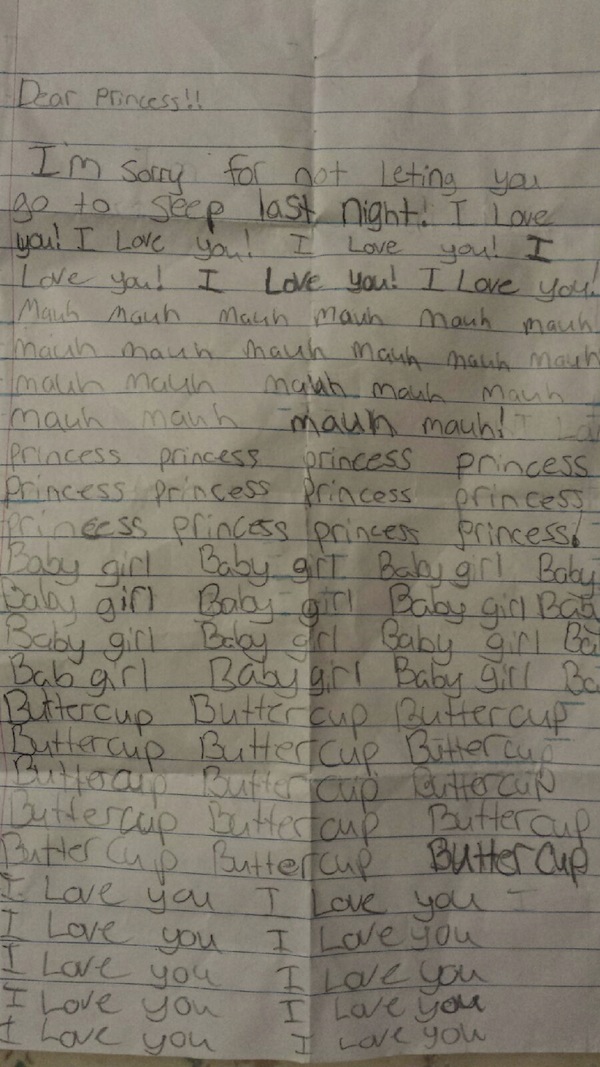 Dear Princess!!
I'm sorry for not leting you
go to sleep last night! I Love
you! I Love you! I Love you! I
Love you! I Love you! I Love you!
Mauh mauh mauh mauh mauh mauh
mauh mauh mauh mauh mauh mauh
mauh mauh mauh mauh mauh
mauh mauh mauh mauh!
princess princess princess princess
princess princess princess princess
princess princess princess princess!
Baby girl Baby girl Baby girl Baby
Baby girl Baby girl Baby girl Bab
Baby girl Baby girl Baby girl Ba
Bab girl Baby girl Baby girl Ba
Buttercup Buttercup Buttercup
Buttercup Buttercup Buttercup
Buttercup Buttercup Buttercup
Buttercup Buttercup Buttercup
Buttercup Buttercup Buttercup
I Love you I Love you
I Love you I Love you
I Love you I Love you
I Love you I Love you
I Love you I Love you